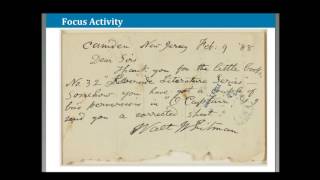 Focus Activity
Camden New Jersey Feb. 9 '88
Dear Sirs
Thank you for the little book,
No. 32 "Riverside Literature Series"
Somehow you have got a couple of
bad perversions in "O Captain," & I
send you a corrected sheet
Walt Whitman